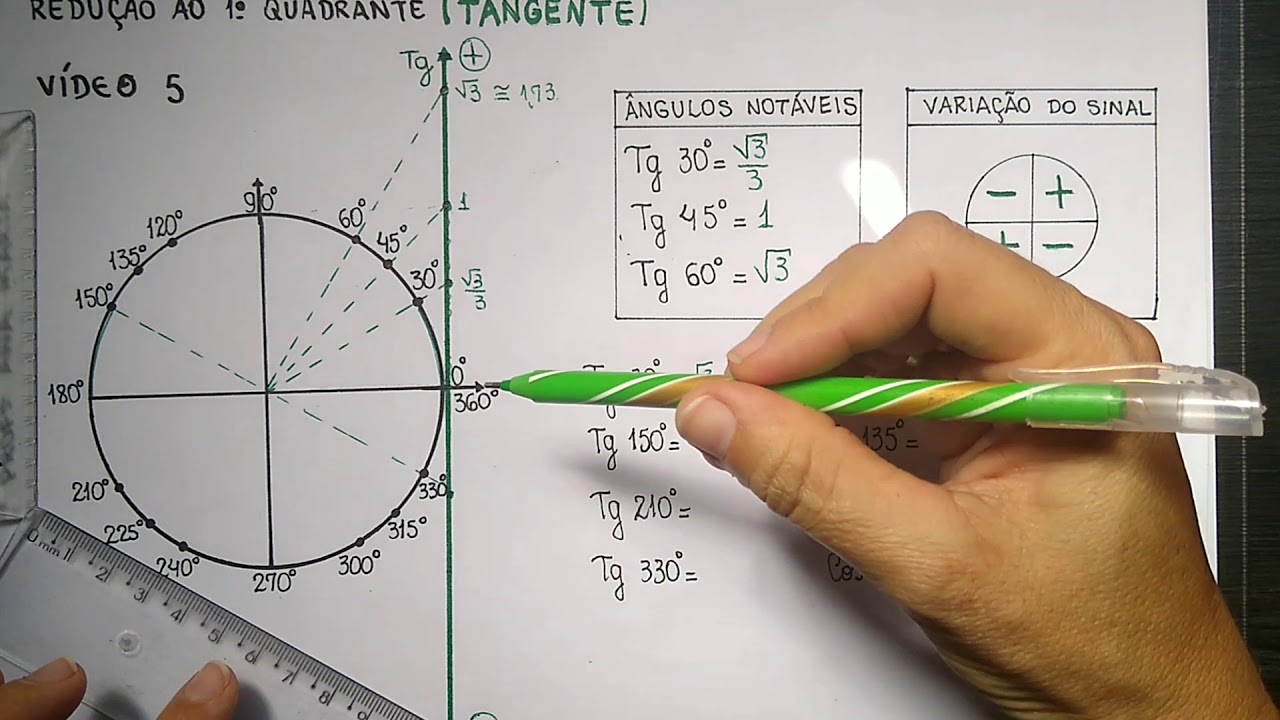 REDUÇÃO AO 1º QUADRANTE (TANGENTE)
VÍDEO 5
Tg +
√3 ≅ 1,73
1
√3/3
90°
120°
135°
150°
180°
210°
225°
240°
270°
300°
315°
330°
0°
360°
30°
45°
60°
ÂNGULOS NOTÁVEIS
Tg 30° = √3/3
Tg 45° = 1
Tg 60° = √3
VARIAÇÃO DO SINAL
- +
+ -
Tg 150° =
135° =
Tg 210° =
Tg 330° =
Cos
0 mm 1 2 3 4 5 6 7 8 9